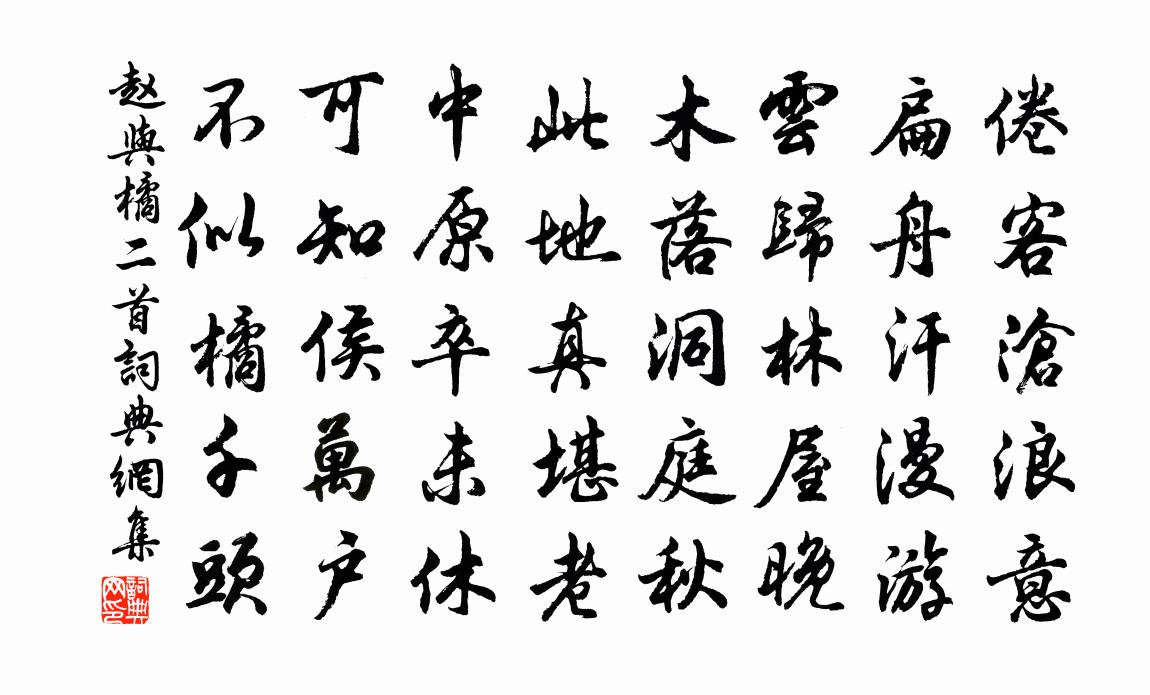 倦客滄浪意
扁舟汗漫游
雲歸林屋晚
木落洞庭秋
此地真堪老
中原卒未休
可知侯萬户
不似橘千頭
赵與橘二首詞典網集
詞典
网印